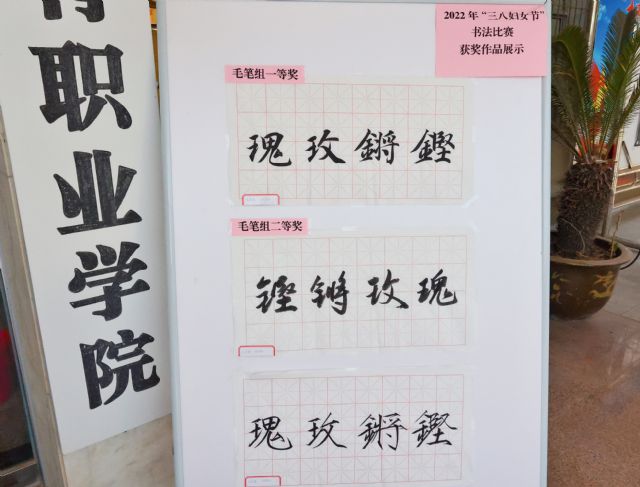 职业学院
2022年“三八妇女节”
书法比赛
获奖作品展示
毛笔组一等奖
鏗鏘玫瑰
毛笔组二等奖
铿锵玫瑰
鏗鏘玫瑰